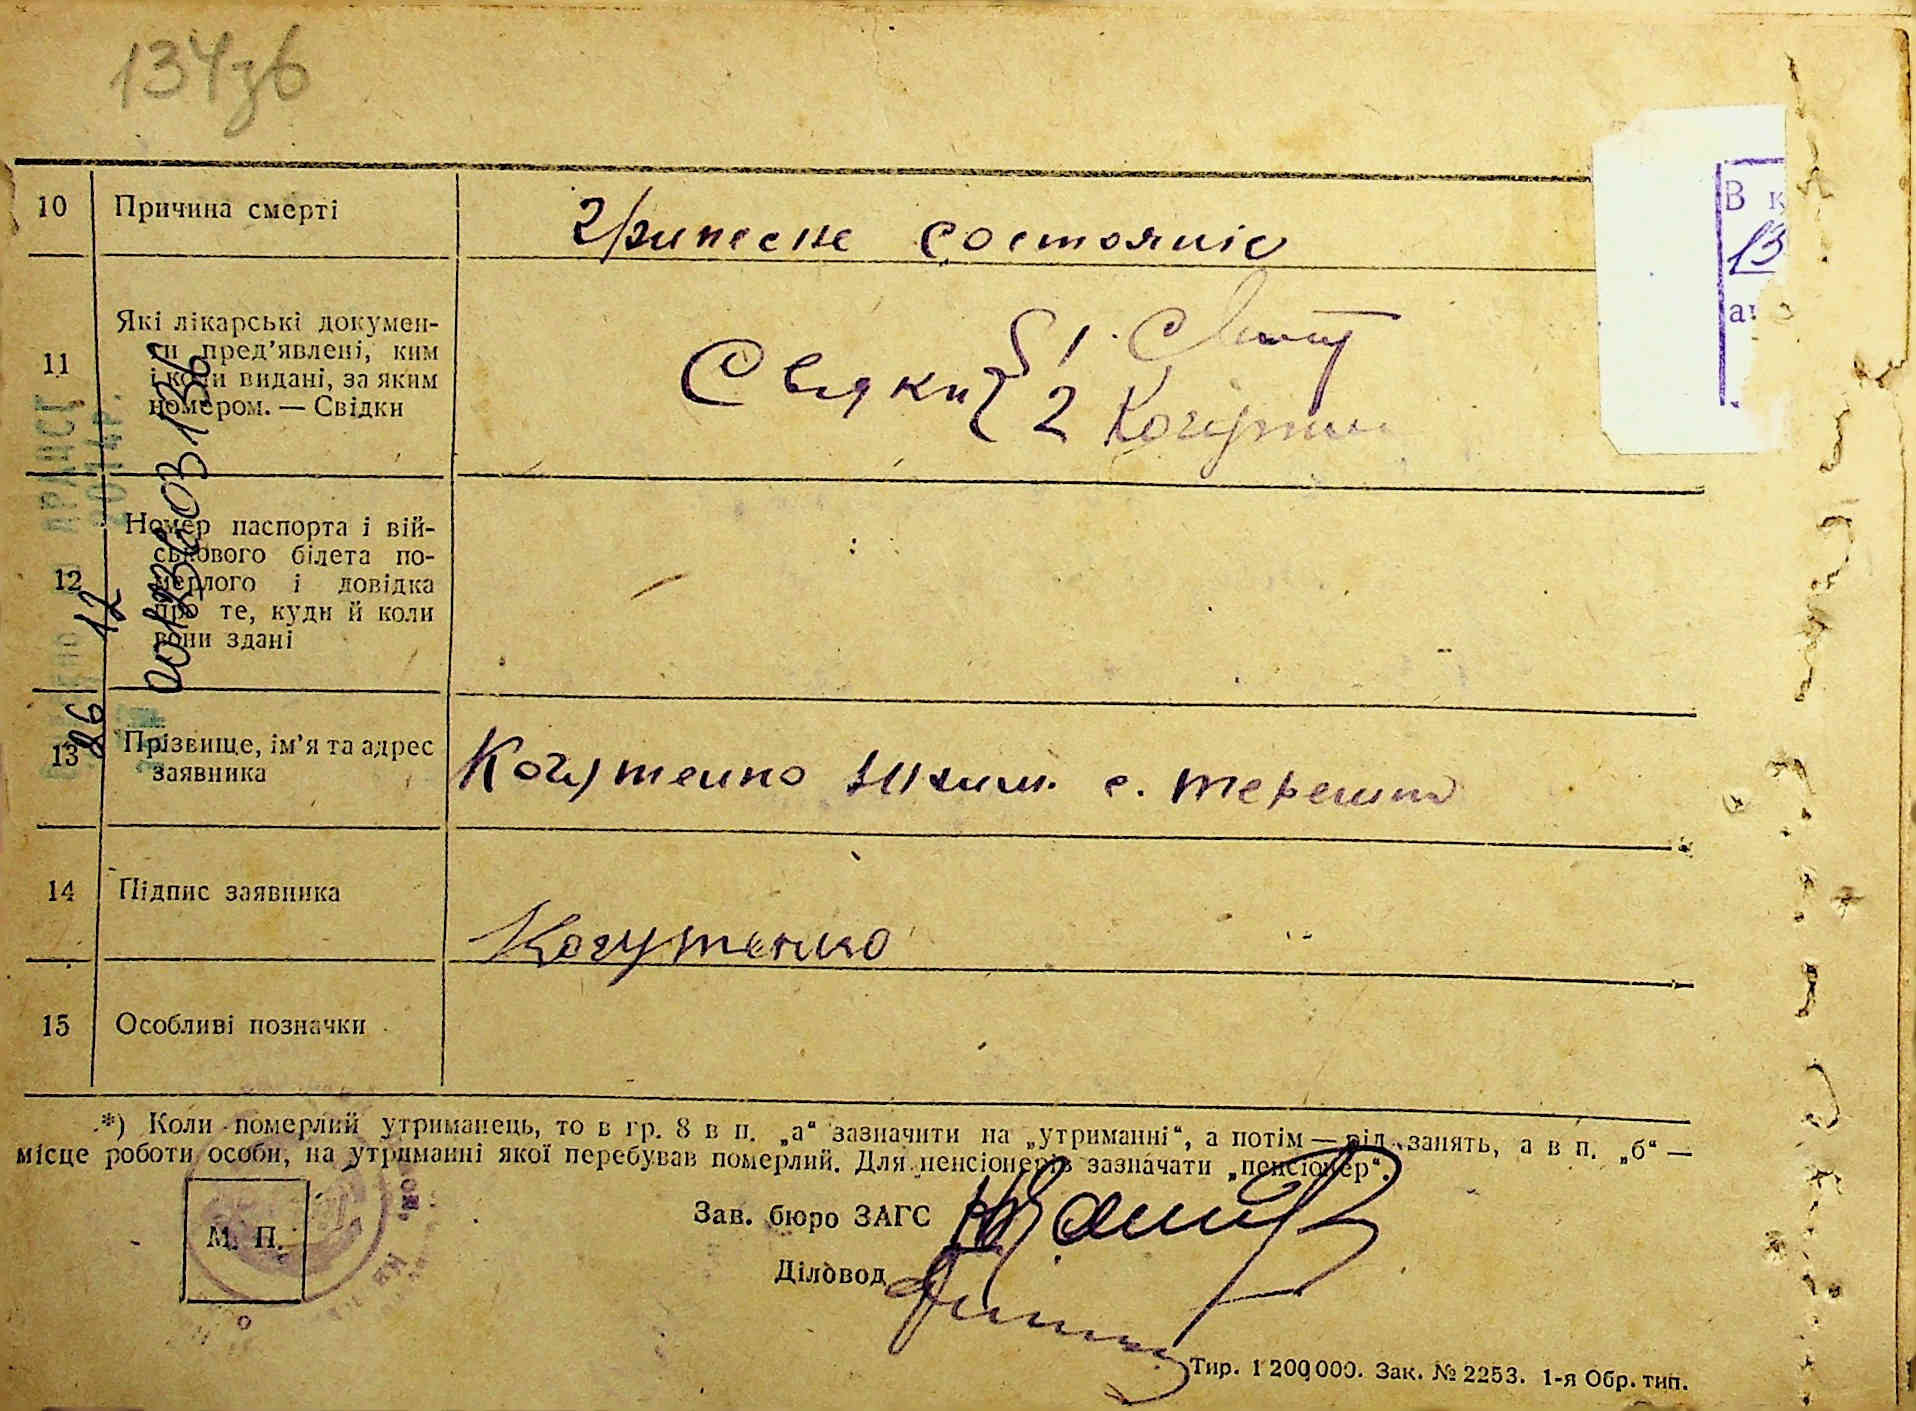 134зв
10 Причина смерті
Грипесне состояніе
11 Які лікарські докумен-
ти пред'явлені, ким
і коли видані, за яким
номером. — Свідки
1.
2
12 Номер паспорта і вій-
ськового білета по-
мерлого і довідка
про те, куди й коли
вони здані
26 12
13 Прізвище, ім'я та адрес
заявника
Когутенко с.
14 Підпис заявника
Когутенко
15 Особливі позначки
*) Коли померлий утриманець, то в гр. 8 в п. „а“ зазначити на „утриманні“, а потім — рід занять, а в п. „б“ —
місце роботи особи, на утриманні якої перебував померлий. Для пенсіонерів зазначати „пенсіонер“.
М. П.
Зав. бюро ЗАГС
Діловод
Тир. 1 200 000. Зак. № 2253. 1-я Обр. тип.
В к
13